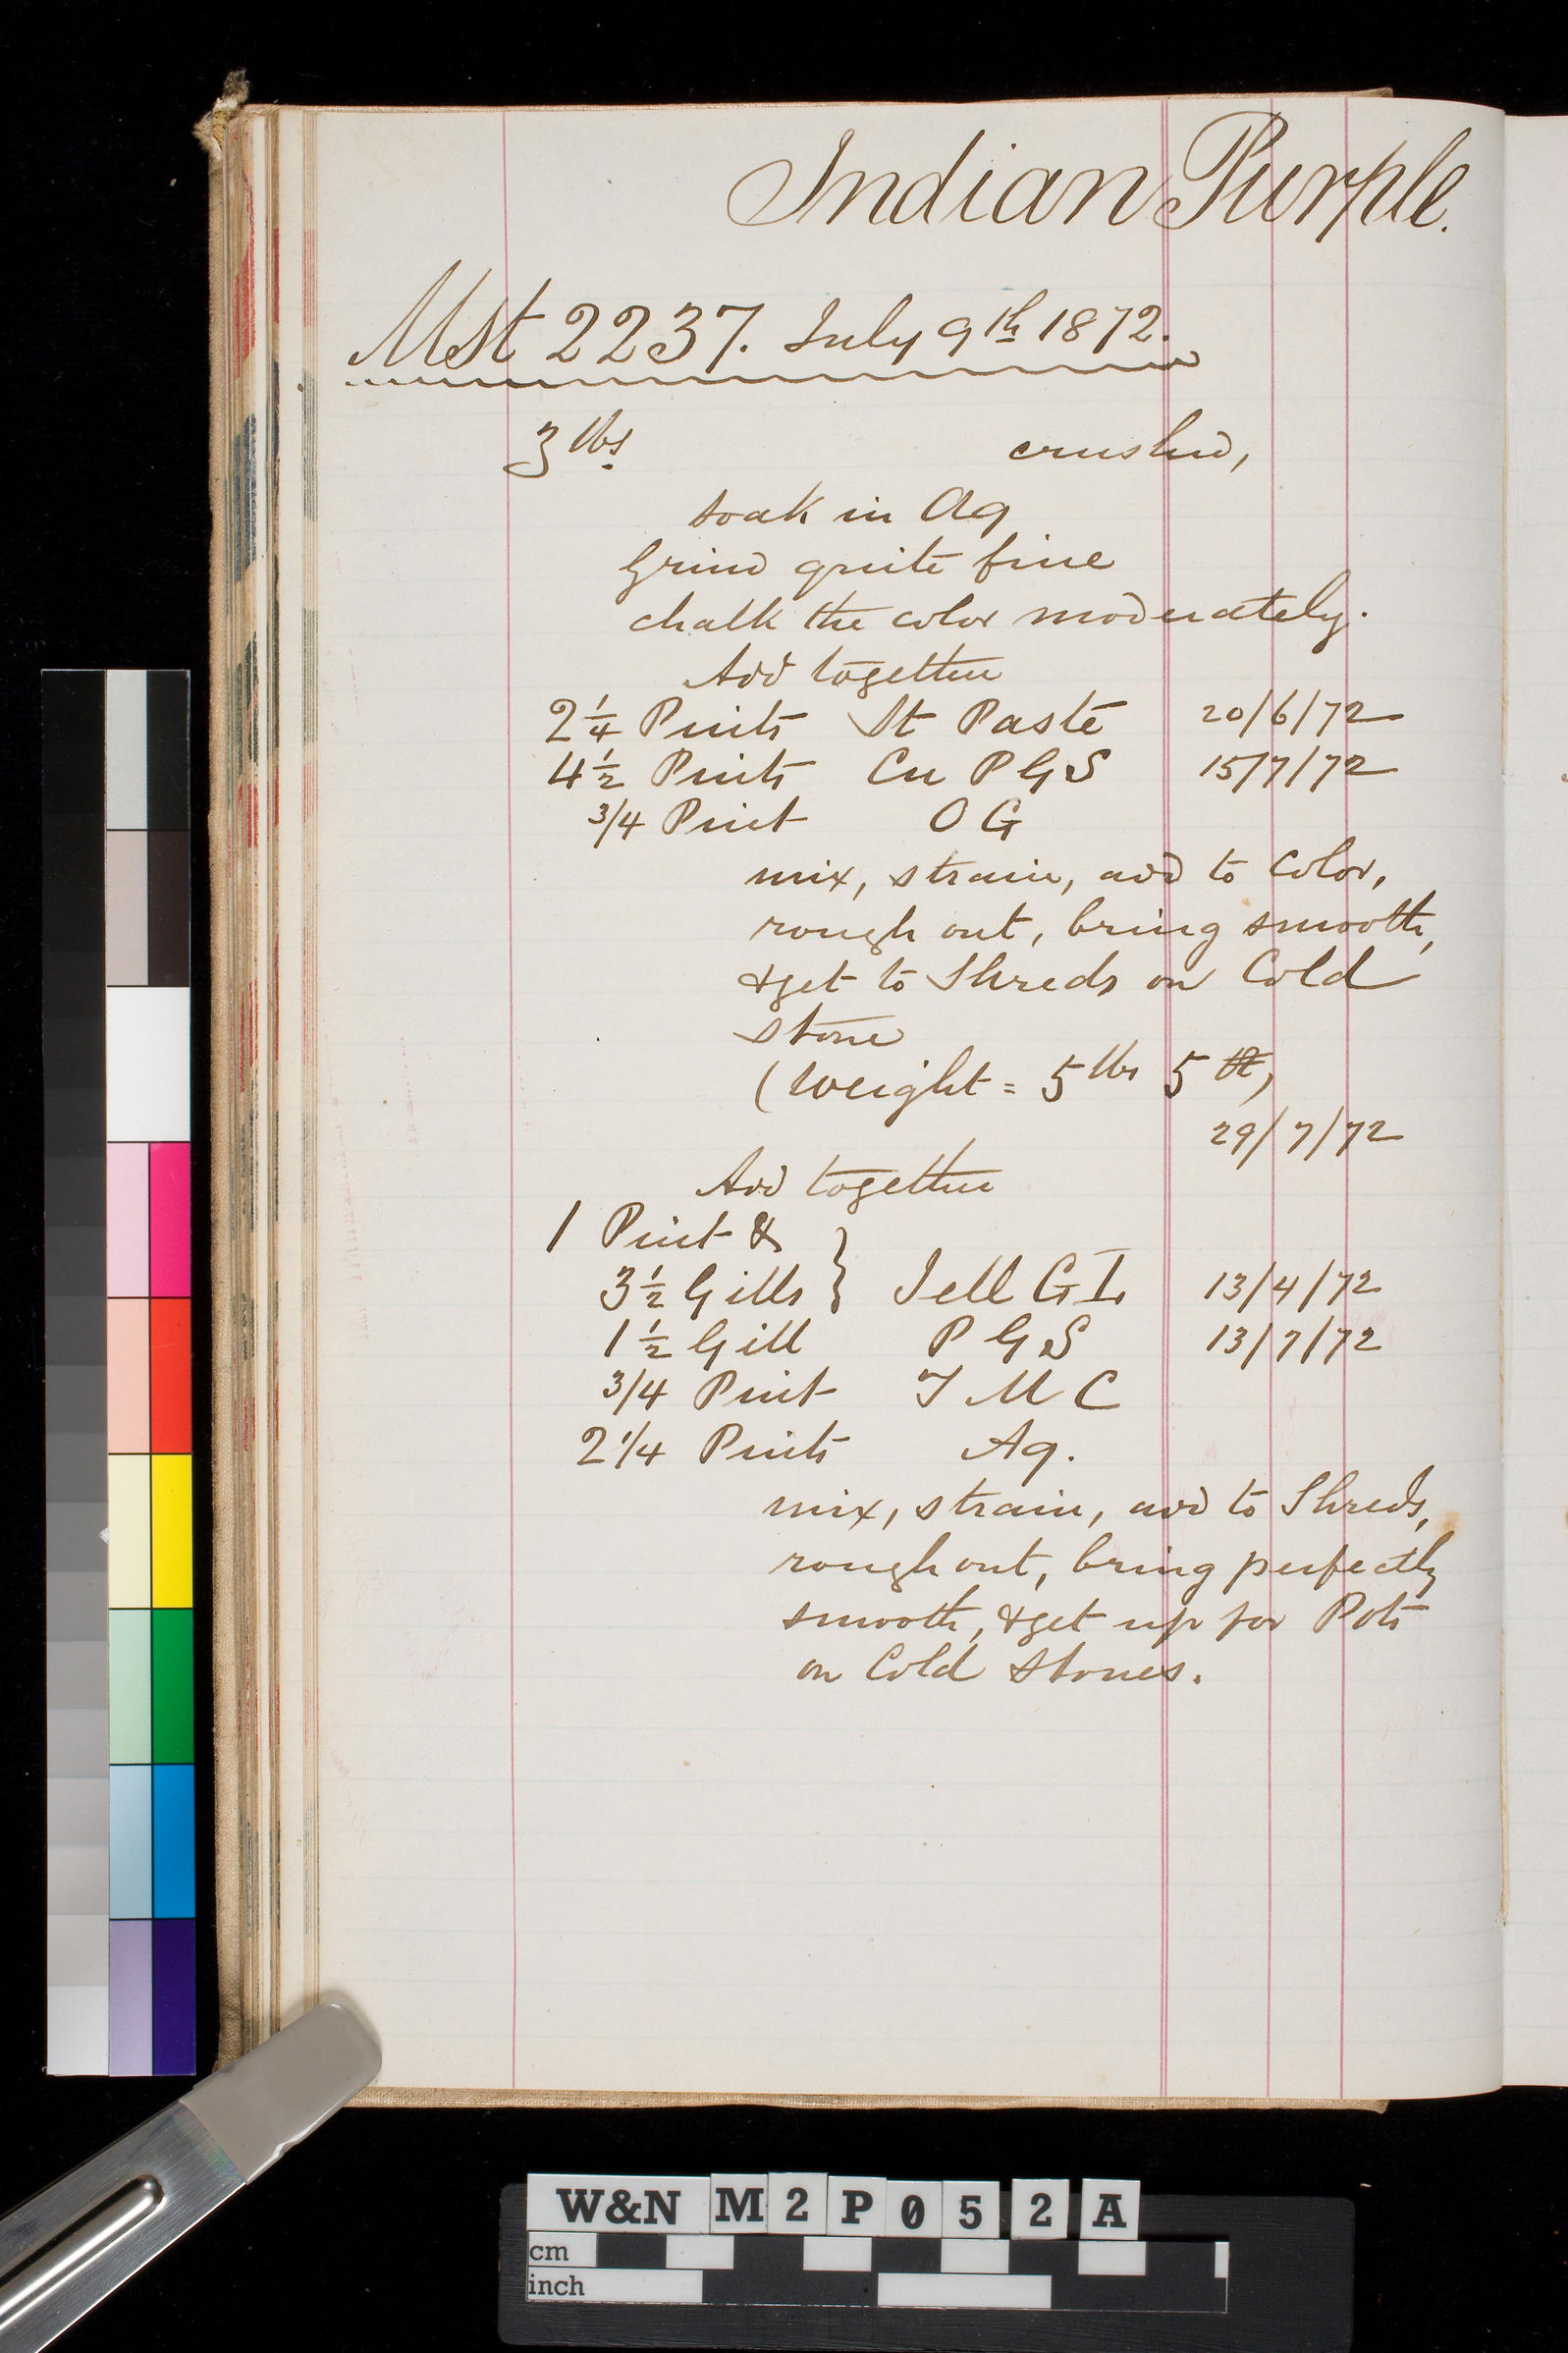 Indian Purple.
Mst 2237. July 9th 1872.
3 lbs crushed,
soak in Aq
Grind quite fine
chalk the color moderately.
Add together
2 1/4 Pints St Paste 20/6/72
4 1/2 Pints Cu P G S 15/7/72
3/4 Pint O G
mix, strain, add to Color,
rough out, bring smooth,
& get to Shreds on Cold
stone
(Weight = 5 lbs 5
29/7/72
Add together
1 Pint &
3 1/2 Gills } Jell G I 13/4/72
1 1/2 Gill P G S 13/7/72
3/4 Pint T M C
2 1/4 Pints Aq.
mix, strain, add to Shreds,
rough out, bring perfectly
smooth, & get up for Pots
on Cold Stones.
W&N M2P052A
cm
inch